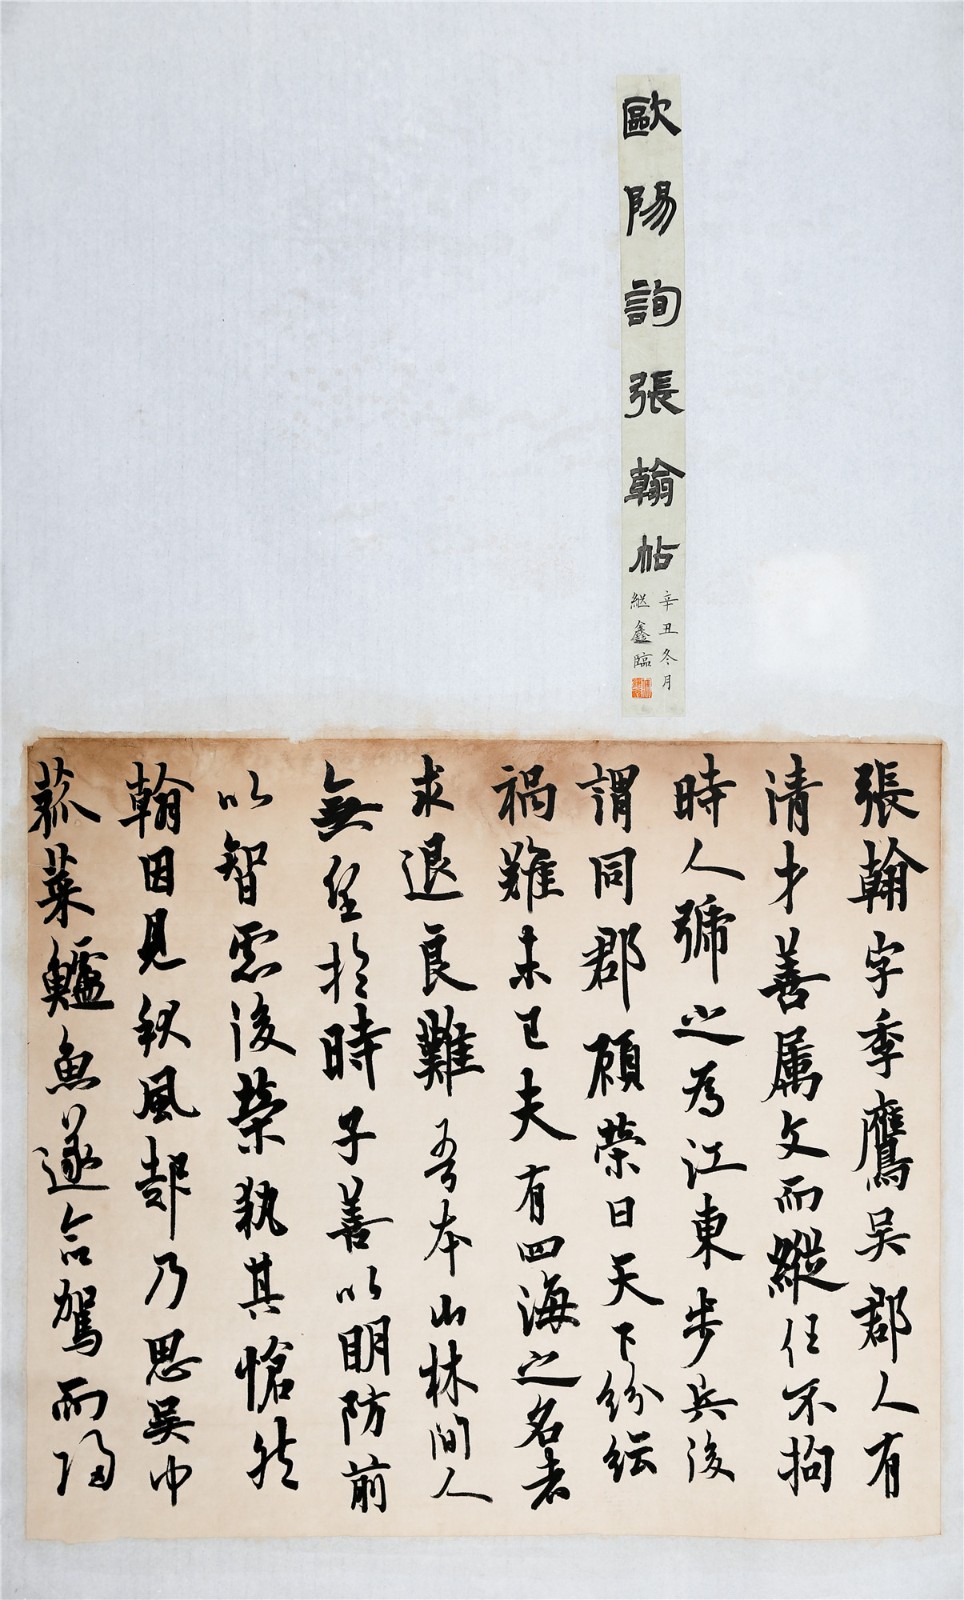 歐陽詢張翰帖
辛丑冬月
繼鑫臨
張翰字季鷹吴郡人有
清才善属文而縱任不拘
時人號之為江東步兵後
謂同郡顧榮曰天下紛紜
禍難未已夫有四海之名者
求退良難吾本山林間人
無望於時子善以明防前
以智慮後榮執其愴然
翰因見秋風起乃思吴中
菰菜鱸魚遂命駕而歸